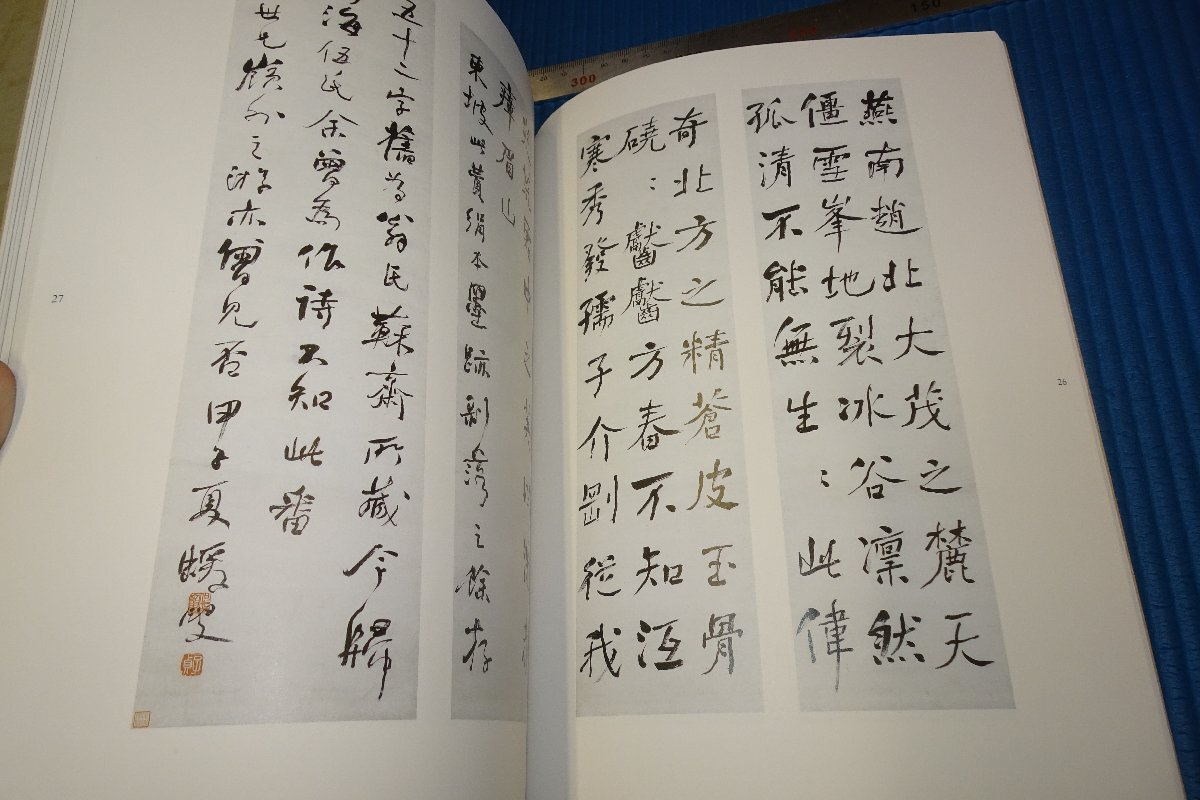 燕南趙北大茂之麓天
僵雪峯地裂冰谷凜然
孤清不能無生〻此偉
奇北方之精蒼皮玉骨
磽〻齾齾方春不知沍
寒秀發孺子介剛從我
璋眉山
東坡此贊絹本墨跡剥落之餘存
五十二字舊為翁氏蘇齋所藏今歸
海伍氏余曾為作詩不知此番
嶺外之游亦曾見否甲子夏蝯叟
27
26
300
150